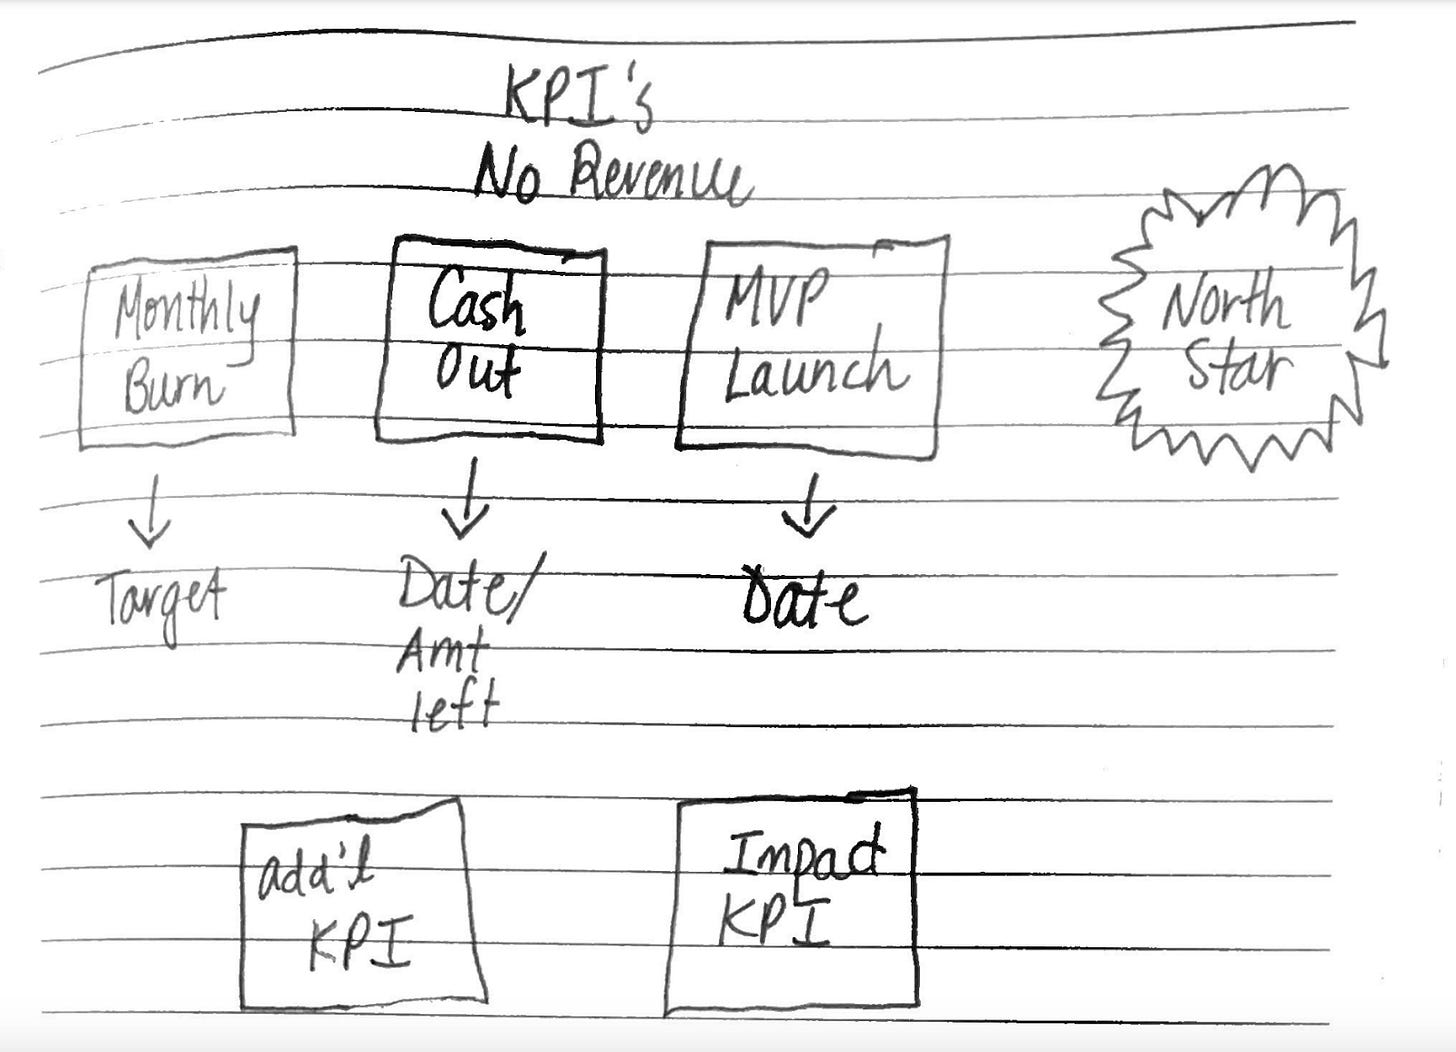 KPI's
No Revenue
Monthly
Burn
Cash
Out
MVP
Launch
North
Star
Target
Date/
Amt
left
Date
add'l
KPI
Impact
KPI